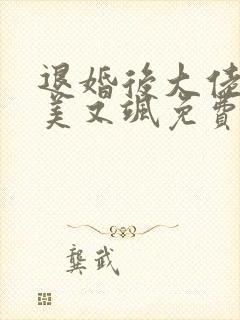 退婚後大佬
美又颯免費
龔武